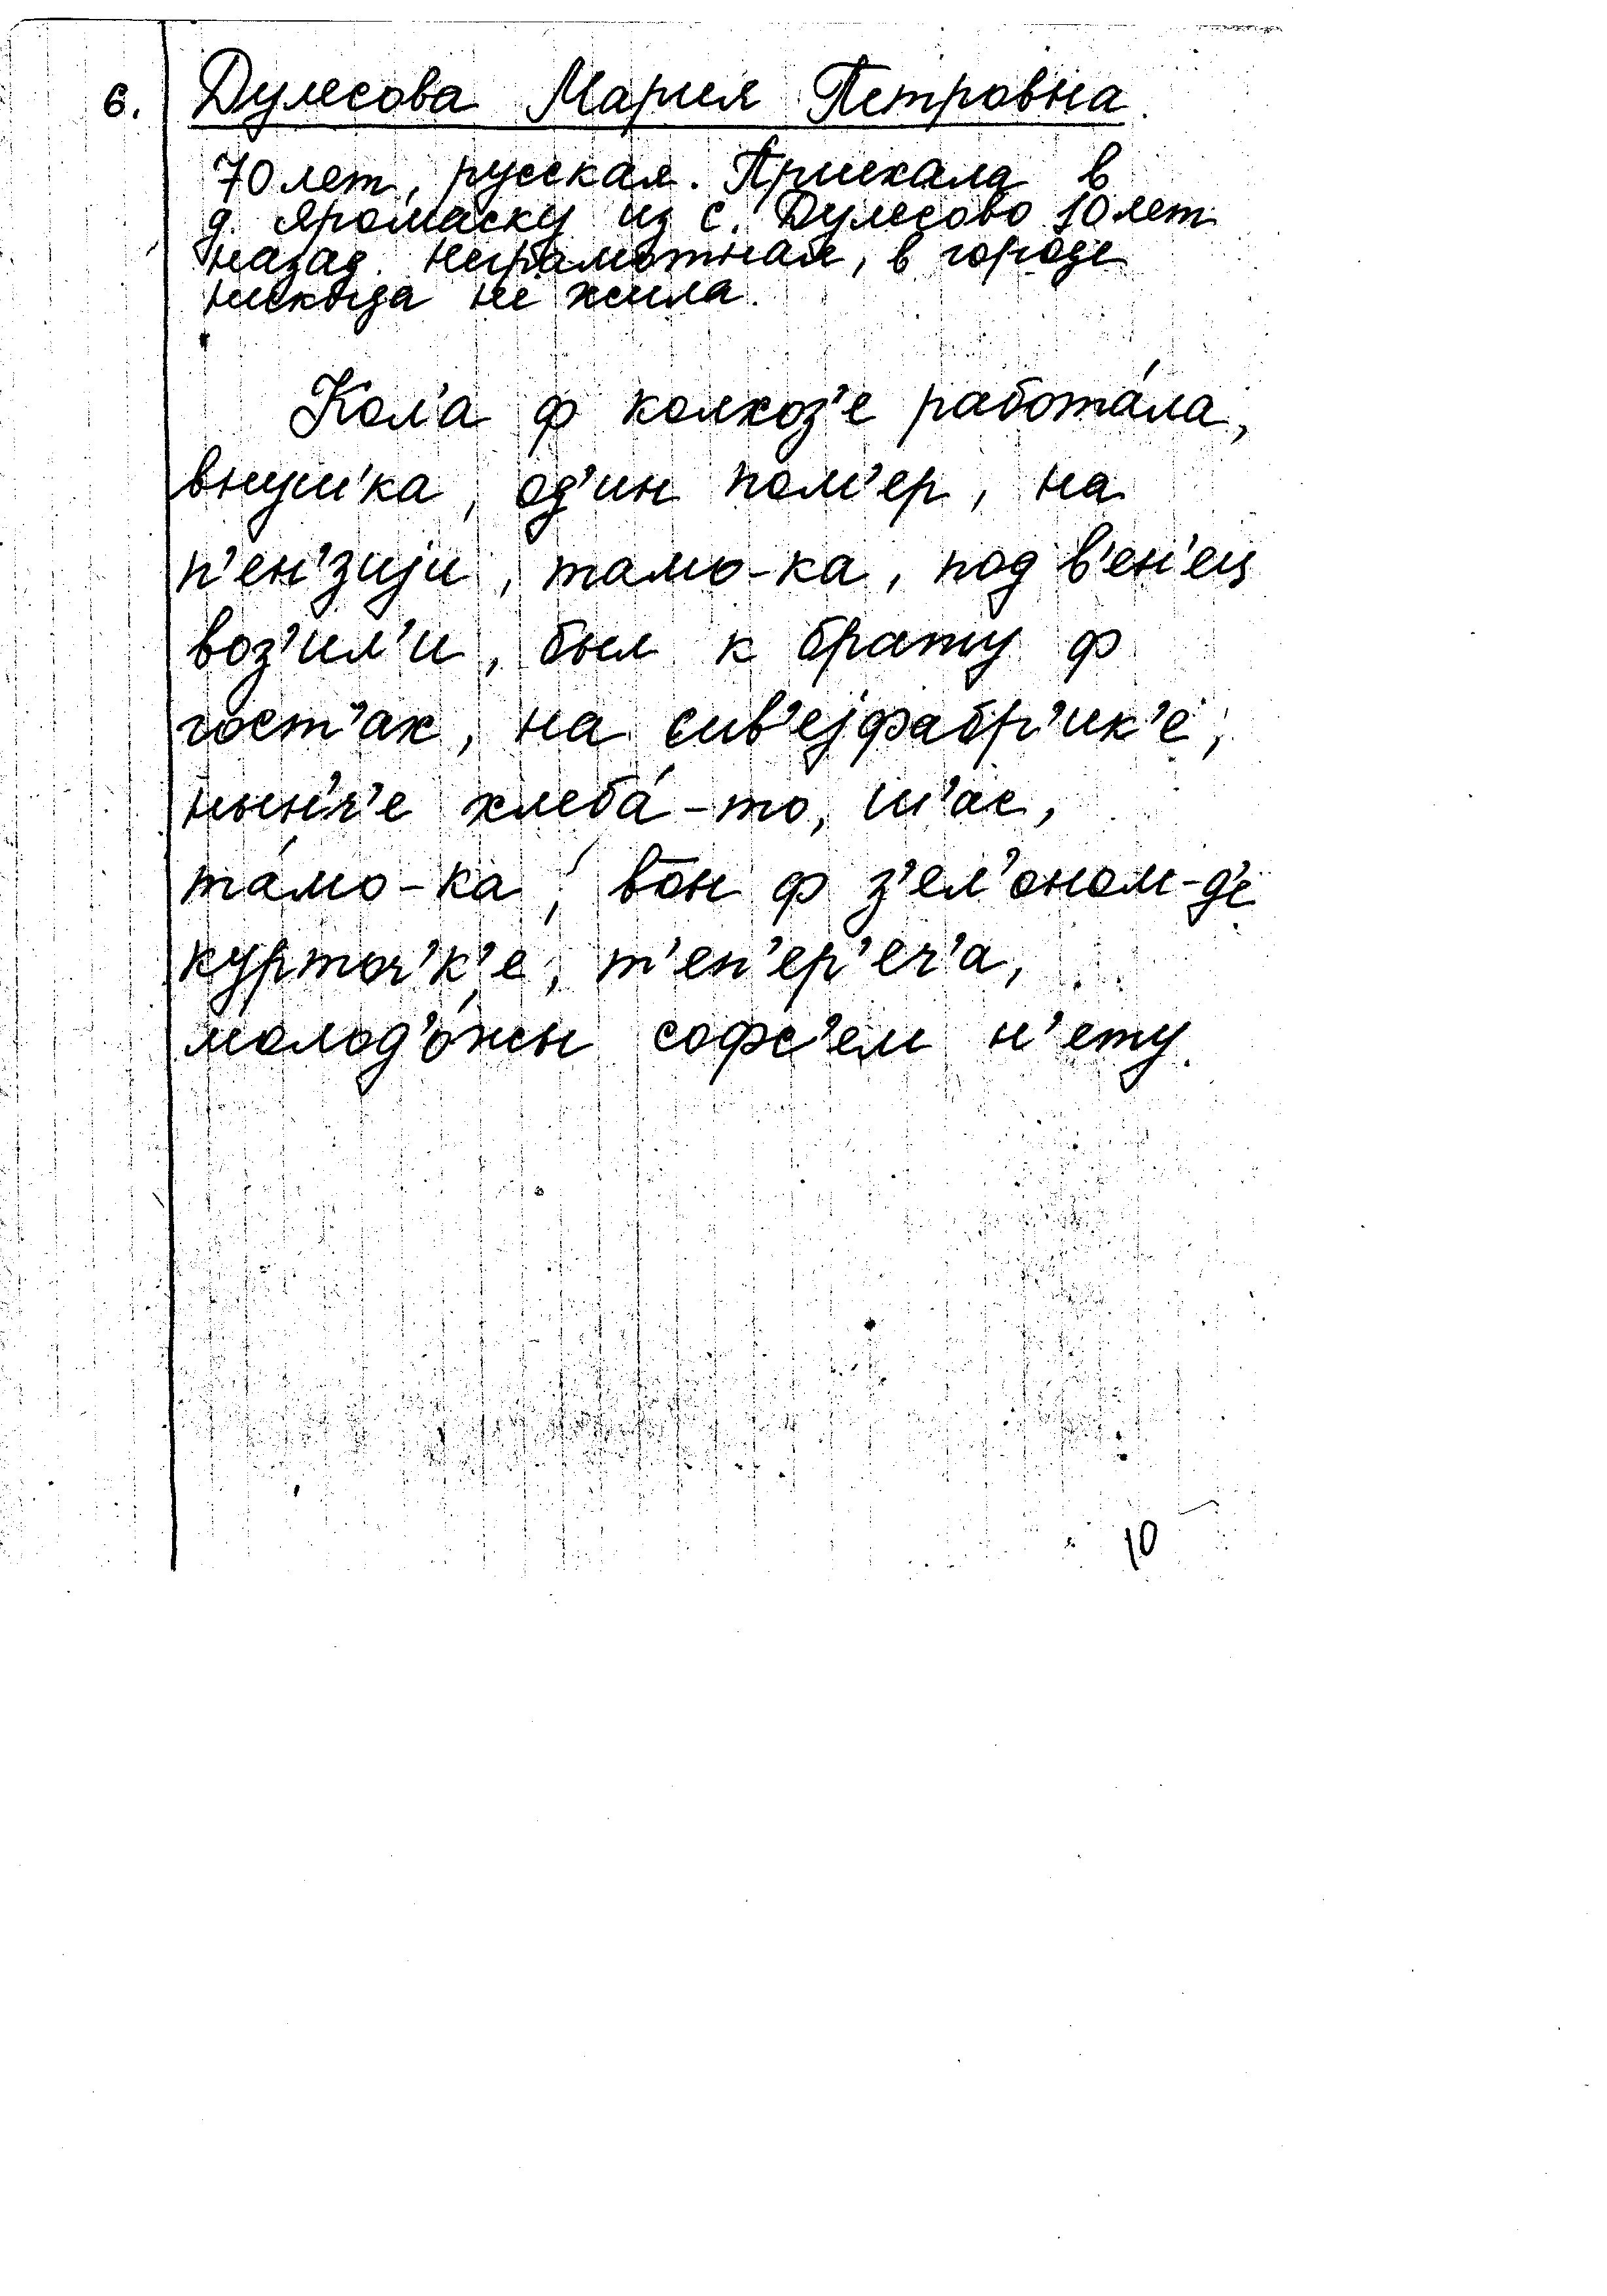 6. Дулесова Мария Петровна.
70 лет, русская. Приехала в
д. Яромаску из с. Дулесово 10 лет
назад. Неграмотная, в городе
никогда не жила.
Кол'а ф колхоз'е рабата́ла,
внуч'ка, од'ин пом'ер, на
п'ен'зиjи, тамо-ка, под в'ен'ец
воз'ил'и, был к брату ф
гост'ах, на св'еjфабр'ик'е,
нын'ч'е хлеба́-то, ш'ас,
та́мо-ка, во̄н ф з'ел'оном-д'е
курточ'к'е, т'еп'ер'еч'а,
молод'о́жы софс'ем н'ету.
10